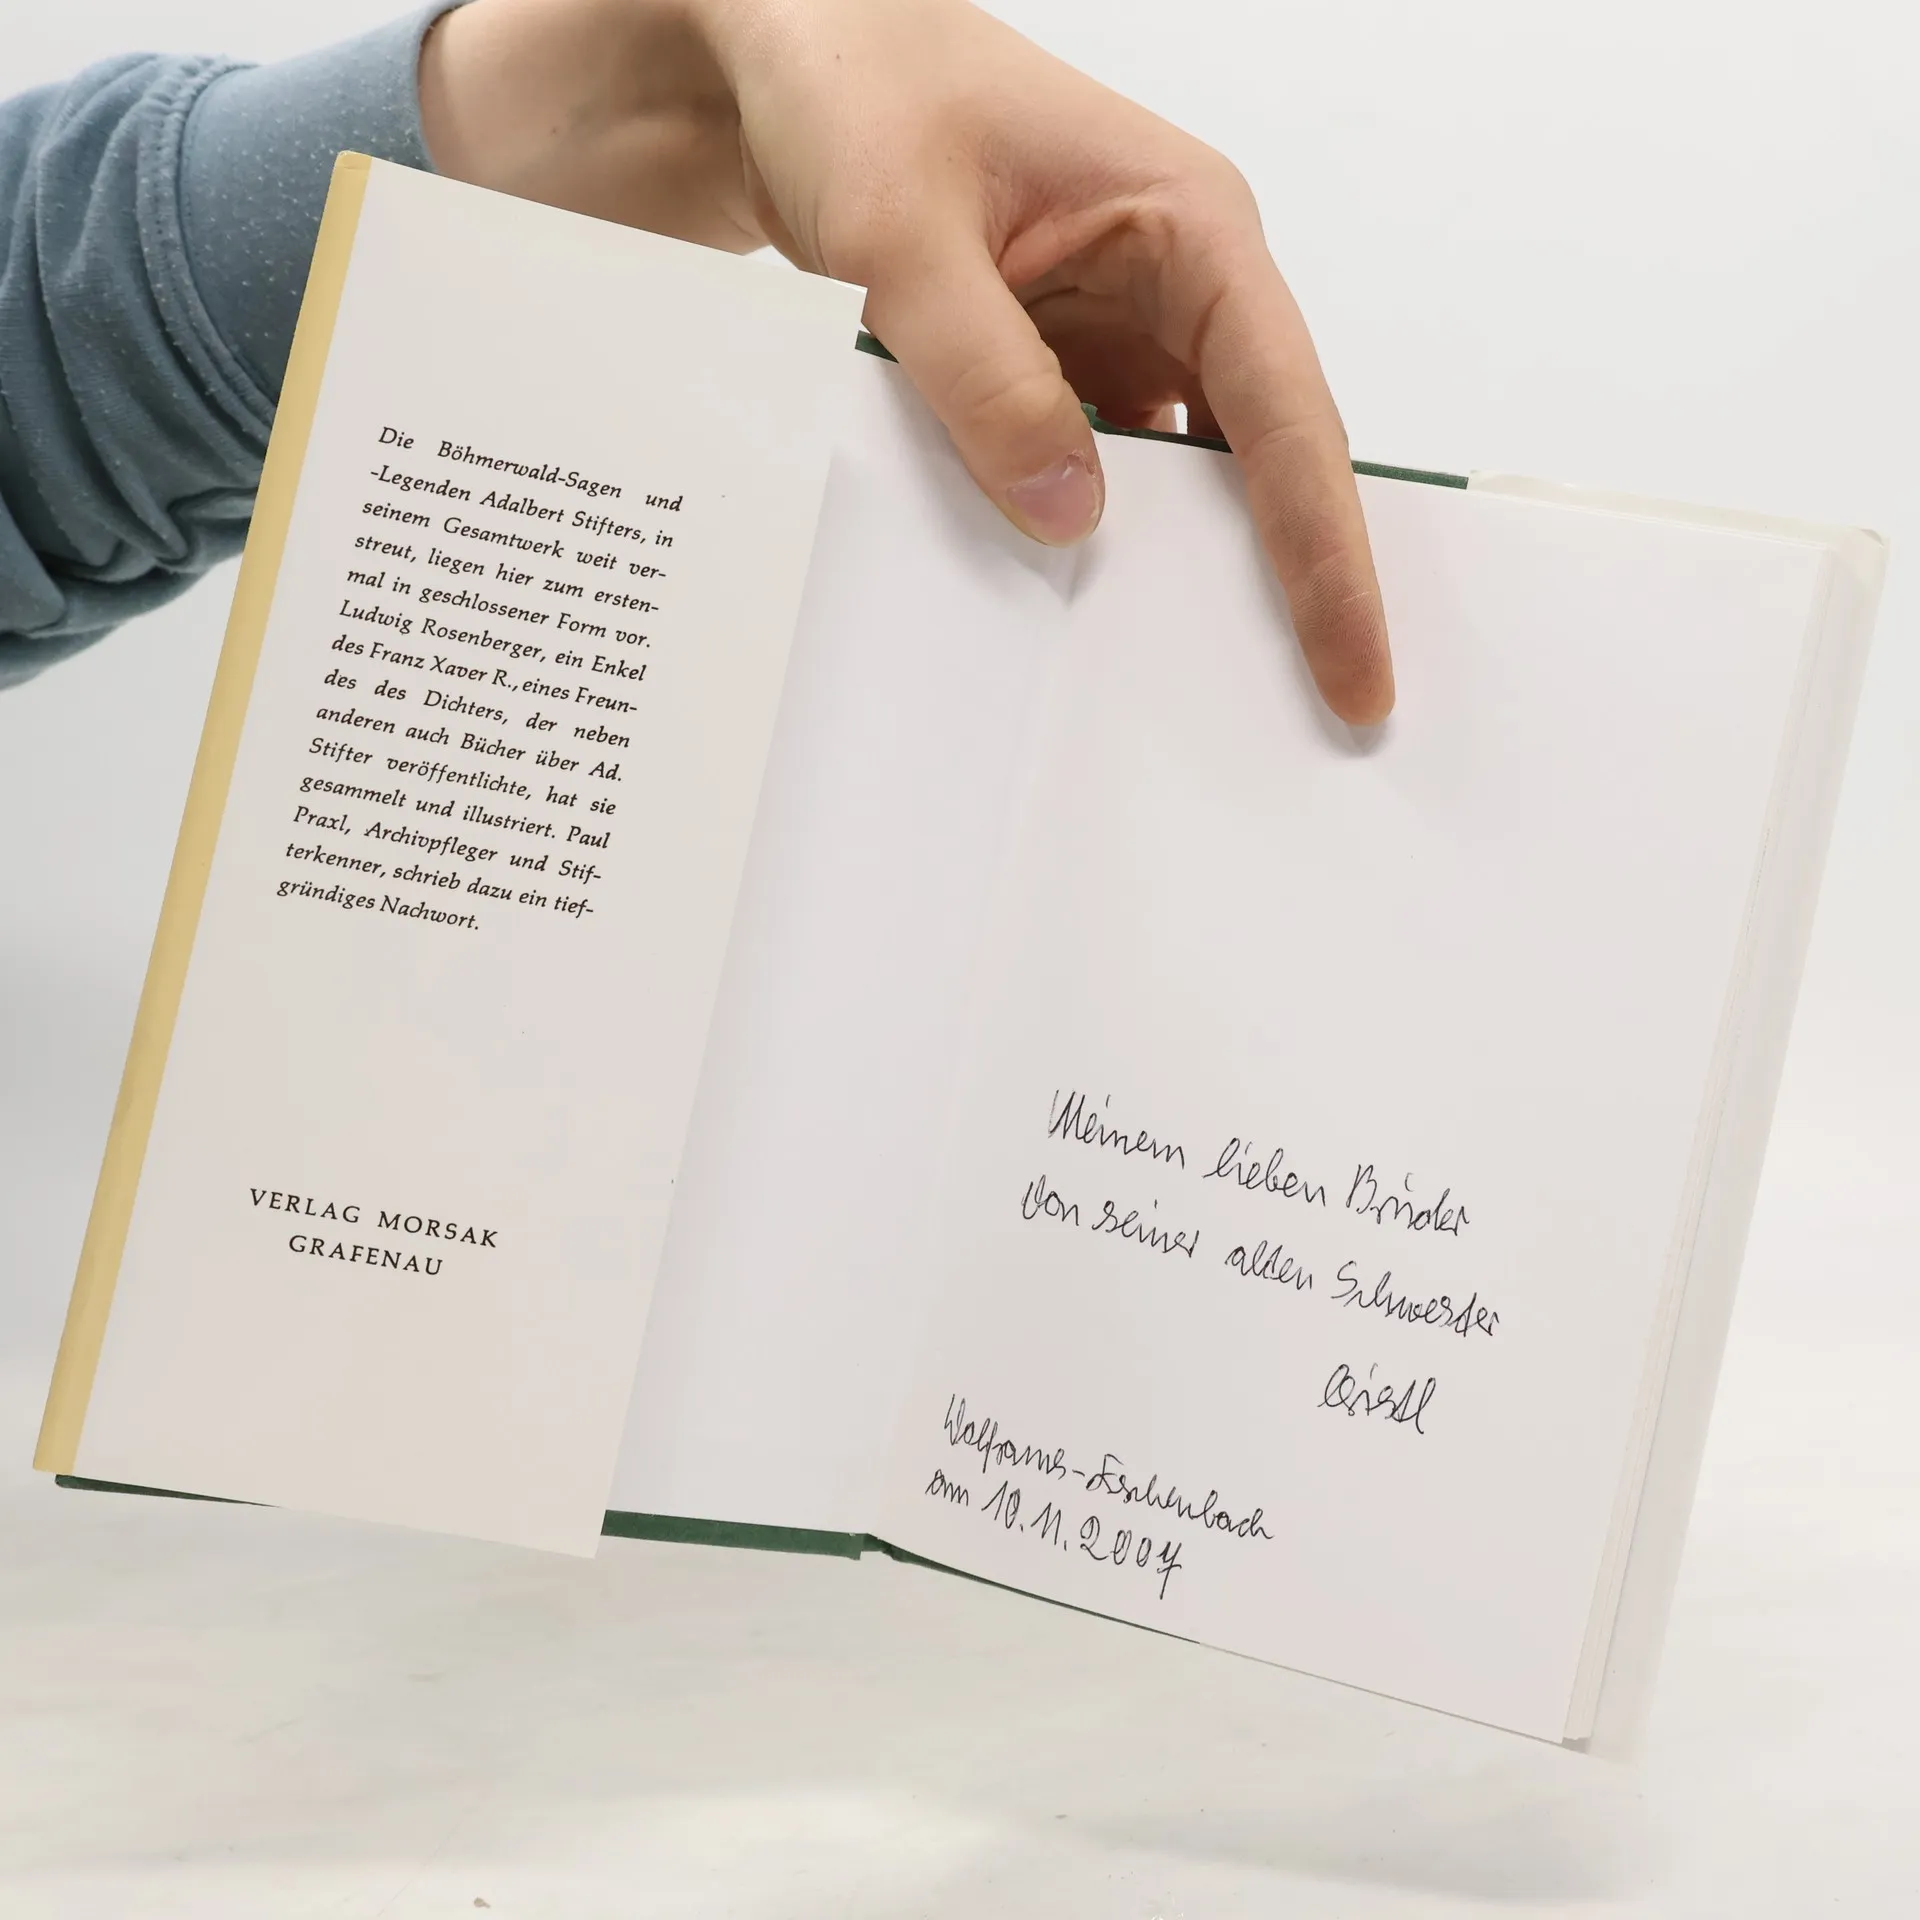 Die Böhmerwald-Sagen und
-Legenden Adalbert Stifters, in
seinem Gesamtwerk weit ver-
streut, liegen hier zum ersten-
mal in geschlossener Form vor.
Ludwig Rosenberger, ein Enkel
des Franz Xaver R., eines Freun-
des des Dichters, der neben
anderen auch Bücher über Ad.
Stifter veröffentlichte, hat sie
gesammelt und illustriert. Paul
Praxl, Archivpfleger und Stif-
terkenner, schrieb dazu ein tief-
gründiges Nachwort.
VERLAG MORSAK
GRAFENAU
Meinem lieben Bruder
von seiner alten Schwester
Wolframs-Eschenbach
am 10.11.2007